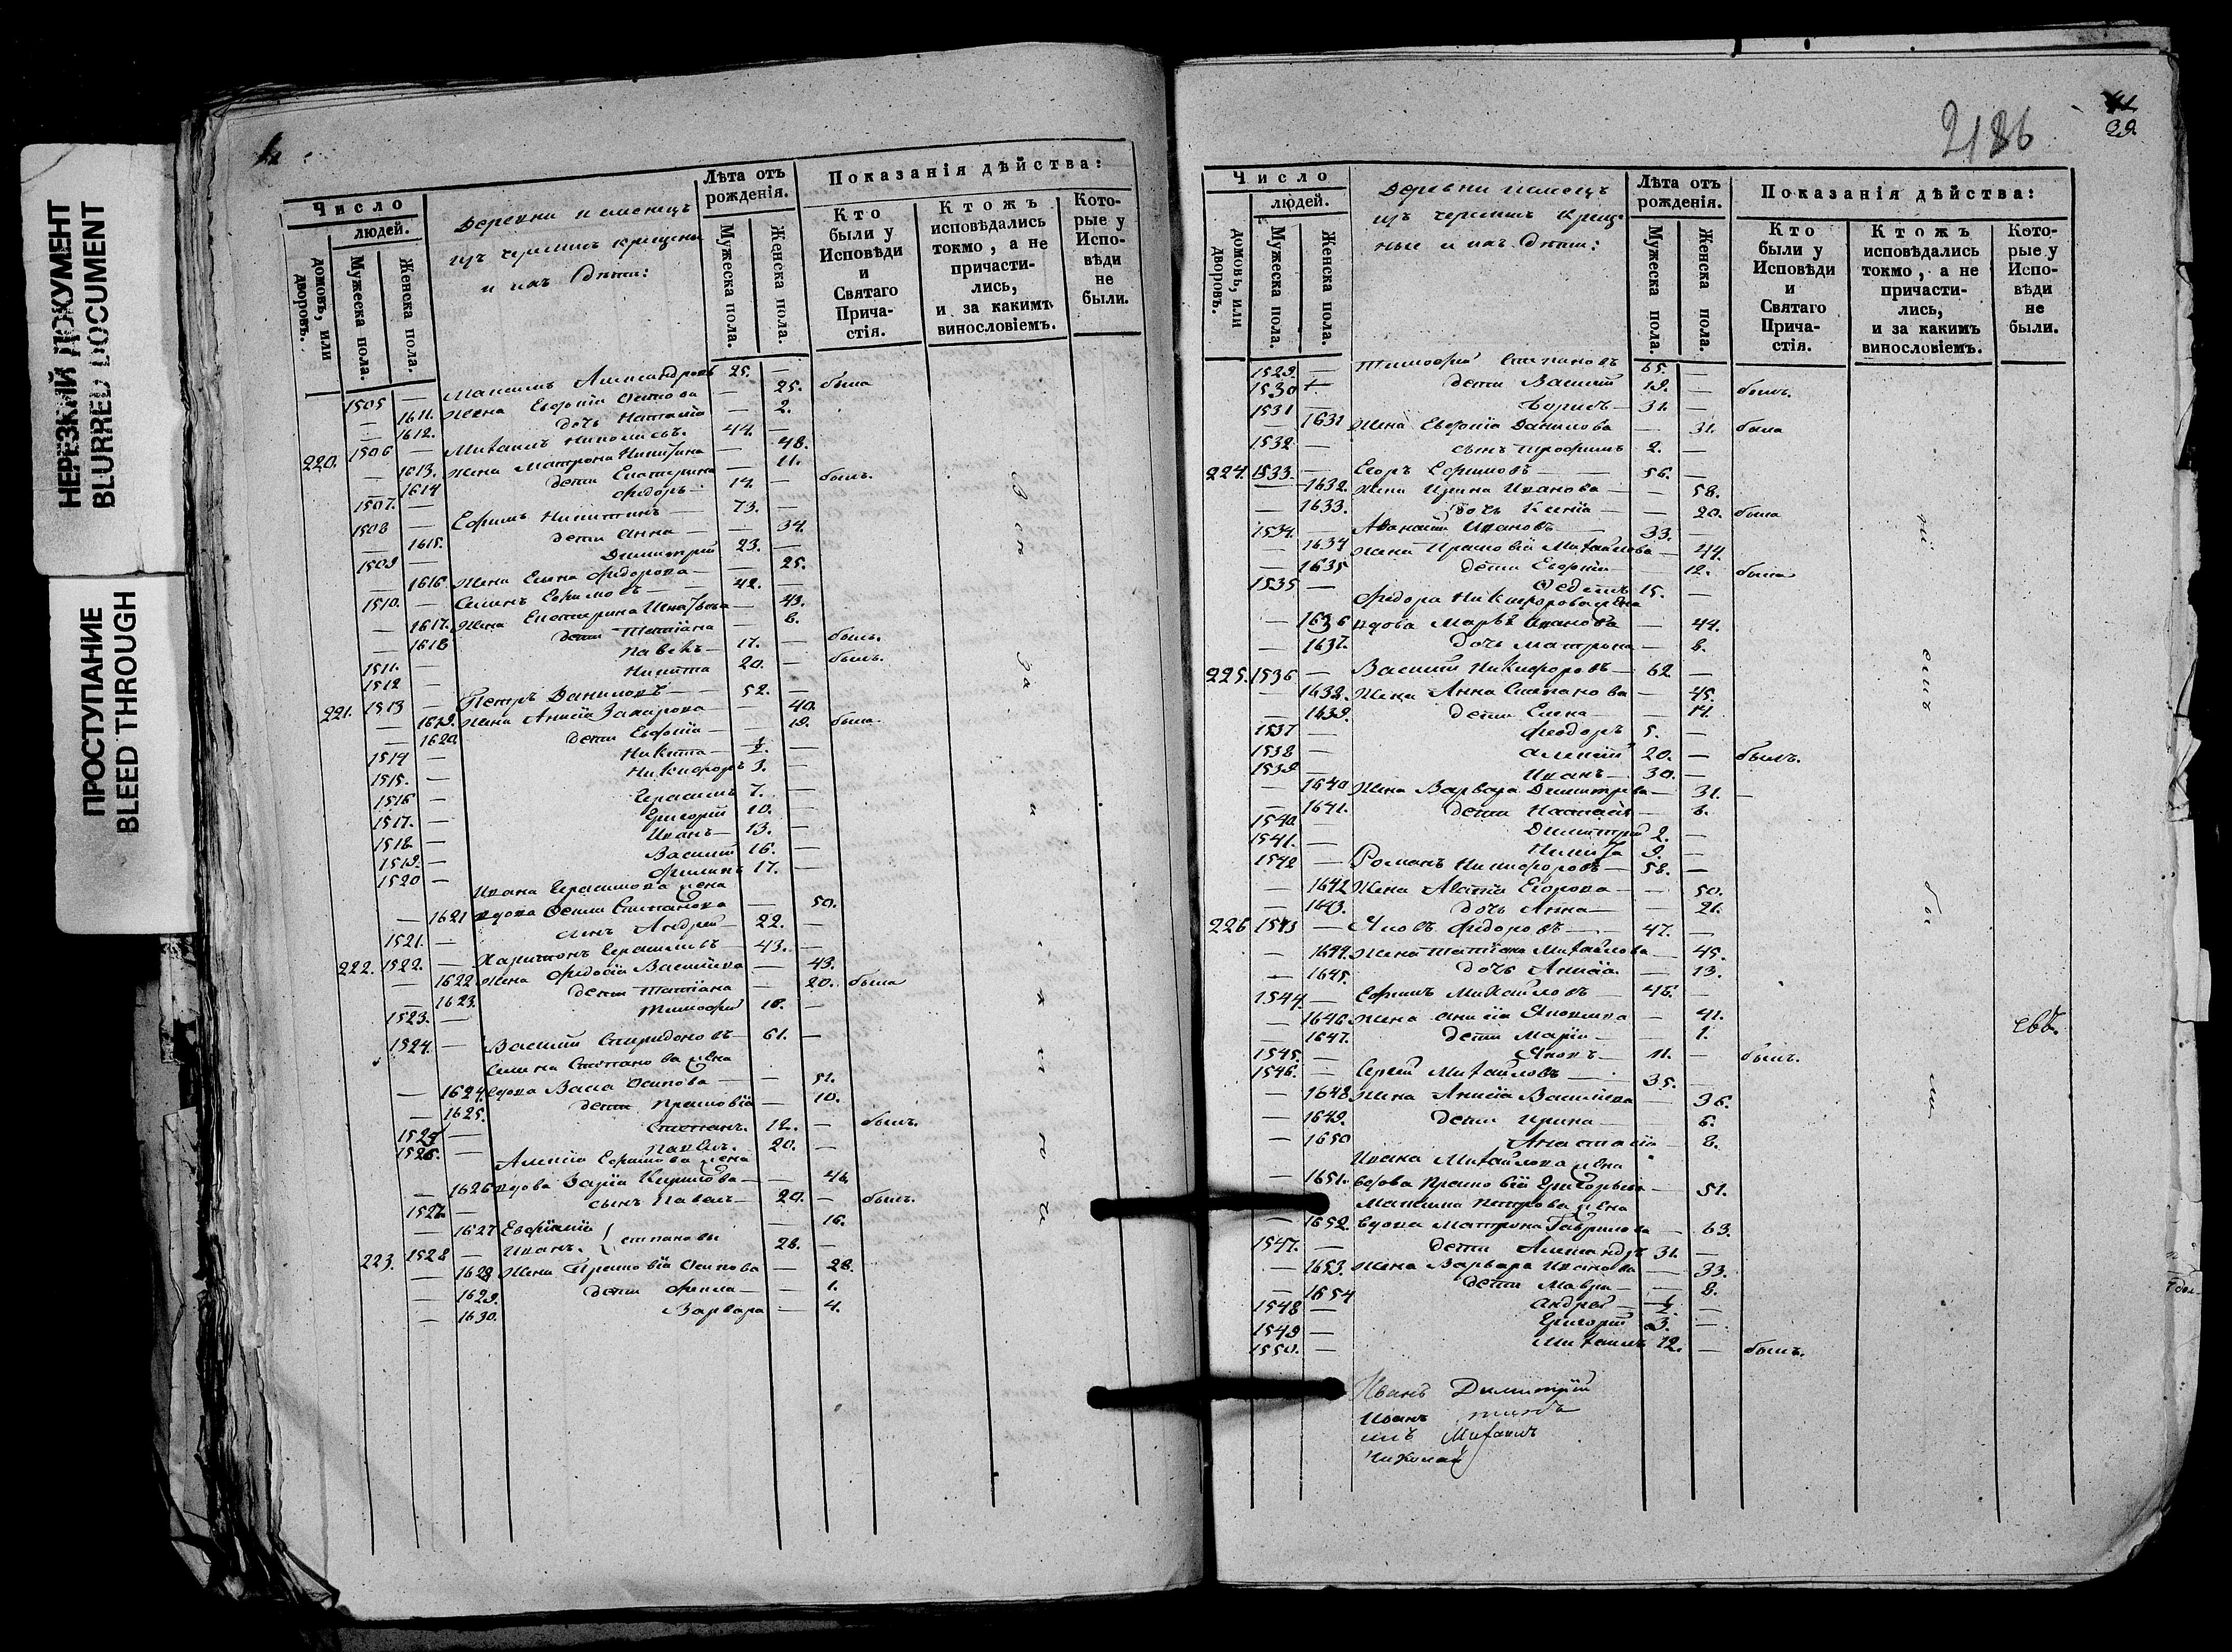 НЕРЕЗКИЙ ДОКУМЕНТ
BLURRED DOCUMENT
ПРОСТУПАНИЕ
BLEED THROUGH
Число
людей.
домовъ, или дворовъ.
Мужеска пола.
Женска пола.
Деревни
изъ черемисъ крещены
и ихъ дѣти:
Лѣта отъ рожденія.
Мужеска пола.
Женска пола.
Показанія дѣйства:
Кто были у Исповѣди и Святаго Прича-стія.
Ктожъ исповѣдались токмо, а не причасти-лись, и за какимъ винословіемъ.
Кото-рые у Испо-вѣди не были.
1505 — Максимъ Александровъ 25. —
— 1611. Жена Евфросинія Осипова — 25. была
— 1612. дочь Наталія — 2.
220. 1506 — Михаилъ 44. —
— 1613. Жена Матрона Никитина — 48.
— 1614 дети Екатерина — 11.
1507. — Федоръ 14. — былъ.
1508 — Ефимъ Никитинъ 73. —
— 1615. дети Анна — 34.
1509 — Димитрій 23. —
— 1616. Жена Елена Федорова — 25.
1510. — Семенъ Ефимовъ 42. —
— 1617. Жена Екатерина Игнатьева — 43.
— 1618 дети Татіана — 6.
1511. — Павелъ 17. — былъ.
1512 — Никита 20. — былъ.
221. 1513 — Петръ Даниловъ 52. —
— 1619. Жена Анисія Захарова — 40.
— 1620 дети — 19. была
1514 — Никита ½. —
1515. — Никифоръ 3. —
1516 — Герасимъ 7. —
1517. — Григорій 10. —
1518 — Иванъ 13. —
1519. — Василій 16. —
1520 — Филипъ 17. —
Ивана Герасимова жена
— 1621 вдова Степанова — 50.
1521. — сынъ Андрей 22. —
222. 1522. — Харитонъ Герасимовъ 43. —
— 1622 Жена Федосія Васильева — 43.
— 1623. дети Татіана — 20. была
1523. — Тимофей 10. —
1524. — Василій Спиридоновъ 61. —
Семена Степанова жена
— 1624 вдова Васа Осипова — 51.
— 1625. дети Прасковія — 10.
1525 — Степанъ. 12. — былъ.
1526. — Павелъ. 20. —
Алексія Ефимова жена
— 1626 вдова Дарія Кирилова — 46.
1527. — сынъ Павелъ 20. — былъ.
— 1627 — 16.
223. 1528 — Иванъ. Степановы 28. —
— 1628 Жена Прасковія Осипова — 28.
— 1629. дети — 1.
— 1630. Варвара — 4.
2186
41
39.
Число
людей.
домовъ, или дворовъ.
Мужеска пола.
Женска пола.
Деревни
изъ черемисъ креще-
ные и ихъ дѣти:
Лѣта отъ рожденія.
Мужеска пола.
Женска пола.
Показанія дѣйства:
Кто были у Исповѣди и Святаго Прича-стія.
Ктожъ исповѣдались токмо, а не причасти-лись, и за какимъ винословіемъ.
Кото-рые у Испо-вѣди не были.
1529. — Тимофей Степановъ 65. —
1530 дети Василій 19. — былъ.
1531 — Борисъ 31. —
— 1631 Жена Данилова — 31. была
1532 — сынъ Трофимъ 2. —
224. 1533. — Егоръ Ефимовъ 56. —
— 1632. Жена Ирина Иванова — 58.
— 1633. дочь Ксенія — 20. была
1534. Афанасій Ивановъ 33. —
— 1634 Жена Прасковія Михайлова — 44.
— 1635 дети — 12. была
1535 — 15. —
Федора Никифорова жена
— 1636 вдова Марѳа Иванова — 44.
— 1637. дочь Матрона — 8.
225. 1536 — Василій Никифоровъ 62 —
— 1638. Жена Анна Степанова — 45.
— 1639. дети Елена — 14.
1537 — Феодоръ 5. —
1538 — Алексій 20. — былъ.
1539 — Иванъ 30. —
— 1640 Жена Варвара Димитрева — 31. —
— 1641. дети — 6.
1540. — Димитрій 2. —
1541. — Никита 9. —
1542 — Романъ Никифоровъ 58. —
— 1642 Жена Егорова — 50.
— 1643. дочь Анна — 21.
226 1543 — Яковъ Федоровъ 47. —
— 1644. Жена Татіана Михайлова — 45.
— 1645. дочь Анисія — 13.
1544 — Ефимъ Михайловъ 46. —
— 1646 Жена Анисія Яковлева — 41.
— 1647. дети Марія — 1.
1545. — Яковъ 11. — былъ.
1546. — Сергей Михайловъ 35. —
— 1648 Жена Анисія Васильева — 36.
— 1649. дети Ирина — 6.
— 1650 Анастасія — 8.
Ивана Михайлова жена
— 1651. вдова Прасковія Григорьева — 51.
Максима Петрова жена
— 1652. вдова Матрона Гаврилова — 63.
1547. — дети Александръ 31. —
— 1653. Жена Варвара Иванова — 33.
— 1654 дети Мавра — 8.
1548 — Андрей ½. —
1549 — Григорій 3. —
1550. — Михаилъ 12. — былъ.
Иванъ Димитрій
Иванъ
Михаилъ
Николай